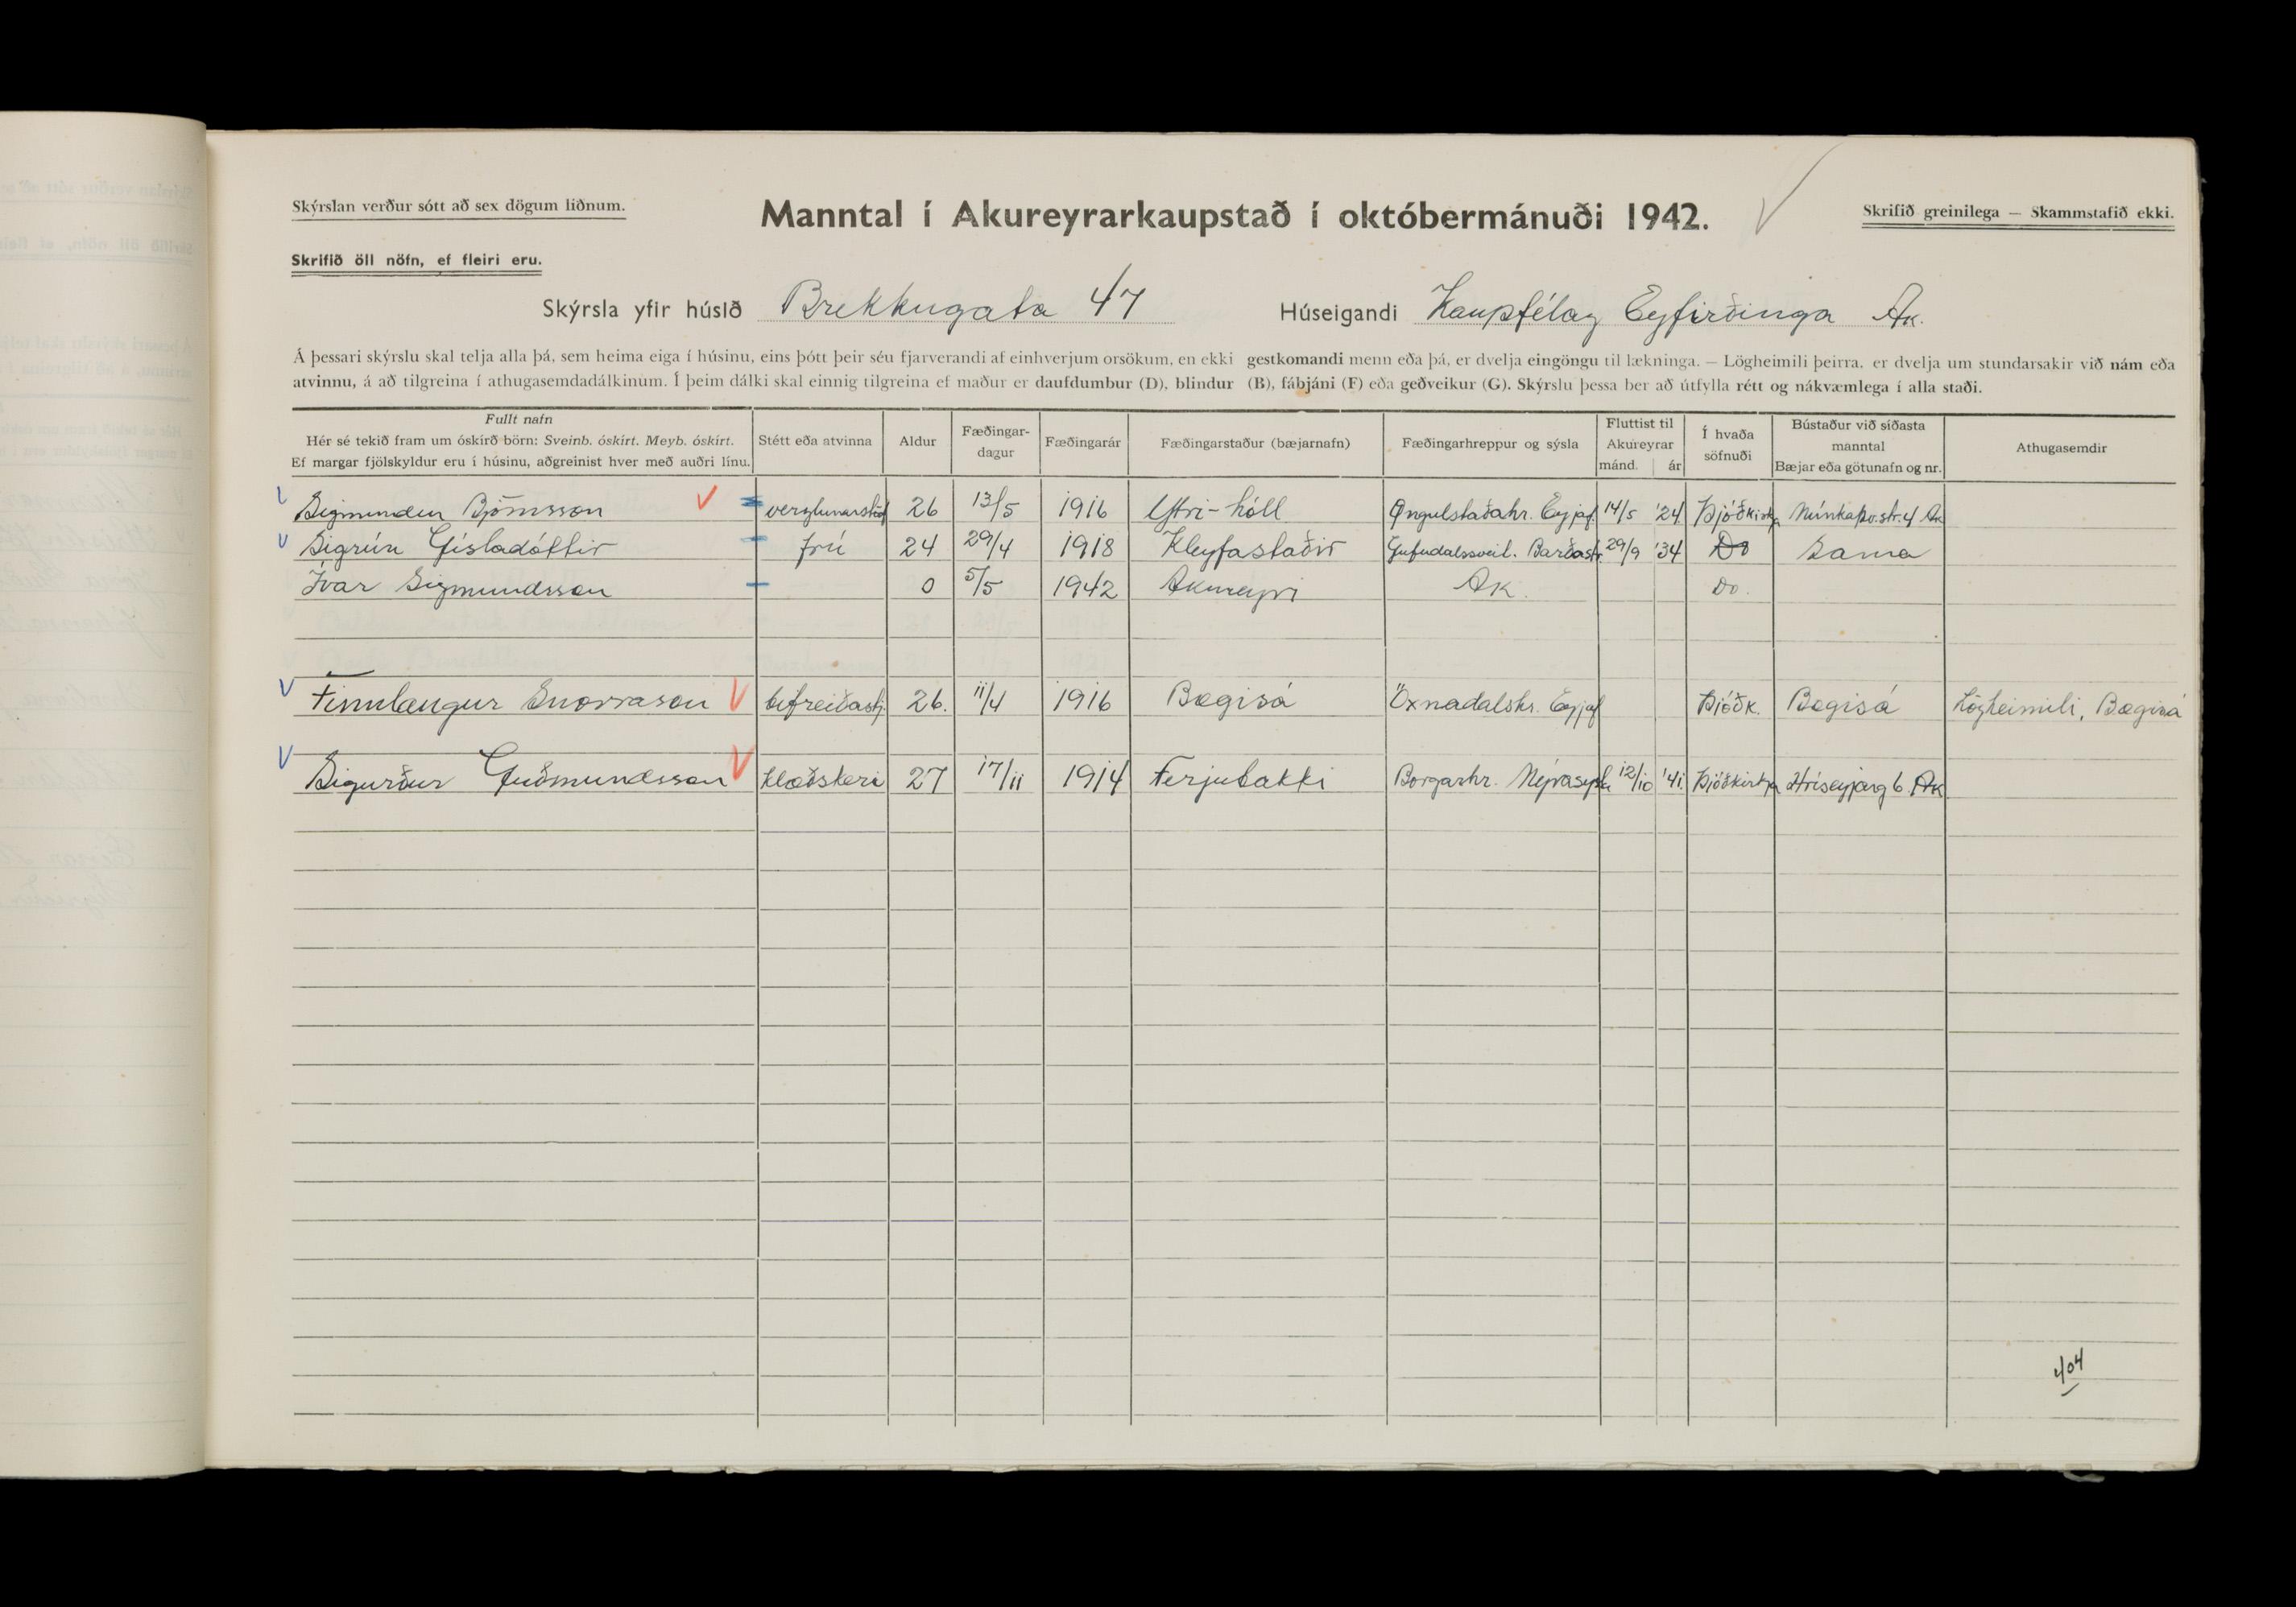 Skýrslan verður sótt að sex dögum liðnum.
Manntal í Akureyrarkaupstað í októbermánuði 1942.
Skrifið greinilega — Skammstafið ekki.
Skrifið öll nöfn, ef fleiri eru.
Skýrsla yfir húsið Brekkugata 47 Húseigandi Kaupfélag Eyfirðinga Ak.
Á þessari skýrslu skal telja alla þá, sem heima eiga í húsinu, eins þótt þeir séu fjarverandi af einhverjum orsökum, en ekki gestkomandi menn eða þá, er dvelja eingöngu til lækninga. — Lögheimili þeirra, er dvelja um stundarsakir við nám eða
atvinnu, á að tilgreina í athugasemdadálkinum. Í þeim dálki skal einnig tilgreina ef maður er daufdumbur (D), blindur (B), fábjáni (F) eða geðveikur (G). Skýrslu þessa ber að útfylla rétt og nákvæmlega í alla staði.
Fullt nafn
Hér sé tekið fram um óskírð börn: Sveinb. óskírt. Meyb. óskírt.
Ef margar fjölskyldur eru í húsinu, aðgreinist hver með auðri línu.
Stétt eða atvinna
Aldur
Fæðingar-
dagur
Fæðingarár
Fæðingarstaður (bæjarnafn)
Fæðingarhreppur og sýsla
Fluttist til
Akureyrar
mánd. ár
Í hvaða
söfnuði
Bústaður við síðasta
manntal
Bæjar eða götunafn og nr.
Athugasemdir
Sigmundur Björnsson 26 13/5 1916 Ytri-hóll Öngulstaðahr. Eyjaf. 14/5 '24 Þjóðkirkja Munkaþv.str. 4 Ak
Sigrún Gísladóttir frú 24 29/4 1918 Kleyfastaðir Gufudalssveit. Barðastr. 29/9 '34 Do Sama
Ívar Sigmundsson 0 5/5 1942 Akureyri Ak. Do.
Finnlaugur Snorrason bifreiðastj. 26. 11/4 1916 Bægisá Öxnadalshr. Eyjaf Þjóðk. Bægisá Lögheimili, Bægisá
Sigurður Guðmundsson klæðskeri 27 17/11 1914 Ferjubakki Borgarhr. Mýrasýsla 12/10 '41. Þjóðkirkja Hríseyjarg 6. Ak
404